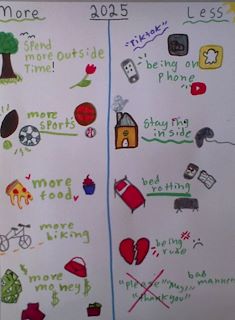 More 2025 Less
Spend
more outside
time!
more
sports
more
food
more
biking
more
money
$ $
"TikTok"
being on
phone
staying
inside
bed
rotting
being
rude
bad
manners
"please"
"thank you"